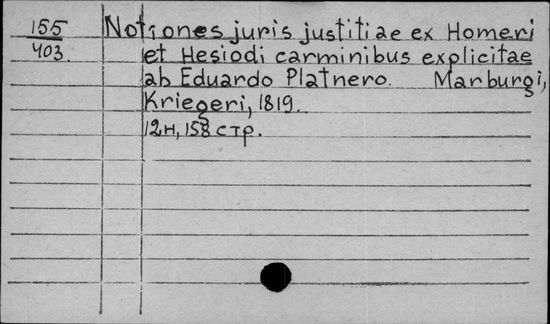 155
403.
Notiones juris justitiae ex Homeri
et Hesiodi carminibus explicitae
ab Eduardo Platnero. Marburgi,
Kriegeri, 1819.
12н, 158 стр.